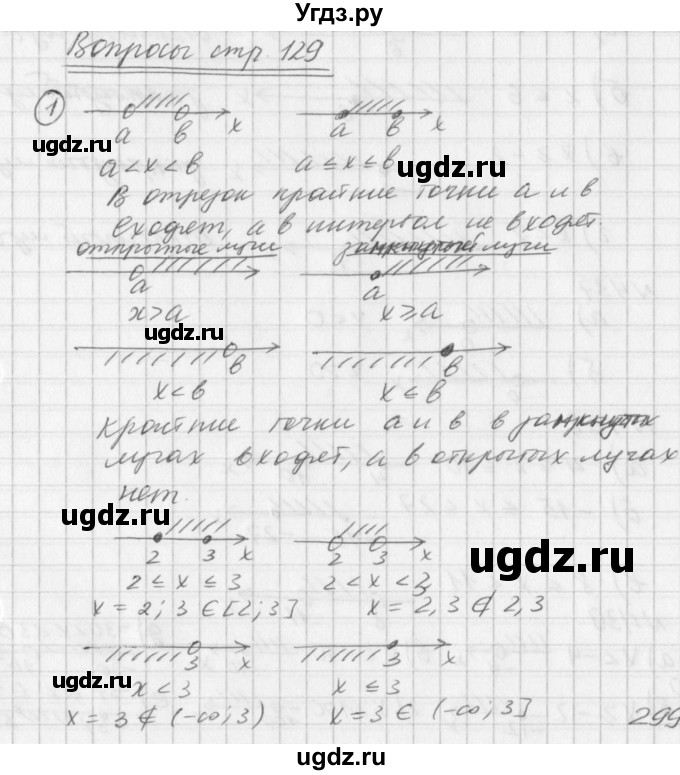 Угдз.ру
Вопросы стр 129
1
a в x a в x
a < x < в a ≤ x ≤ в
ugdz.ru ugdz.ru
В отрезок крайние точки a и в
входят, а в интервал не входят.
открытые лучи замкнутые лучи
a a
x > a x ⩾ a
ugdz.ru
в в
x < в x ≤ в
Крайние точки a и в в замкнутых
лучах входят, а в открытых лучах
нет.
ugdz.ru
2 3 x 2 3 x
ugdz.ru
2 ≤ x ≤ 3 2 < x < 3
x = 2; 3 ∈ [2; 3] x = 2, 3 ∉ 2, 3
3 x 3 x
ugdz.ru
x < 3 x ≤ 3
x = 3 ∉ (-∞; 3) x = 3 ∈ (-∞; 3]
299
ugdz.ru ugdz.ru